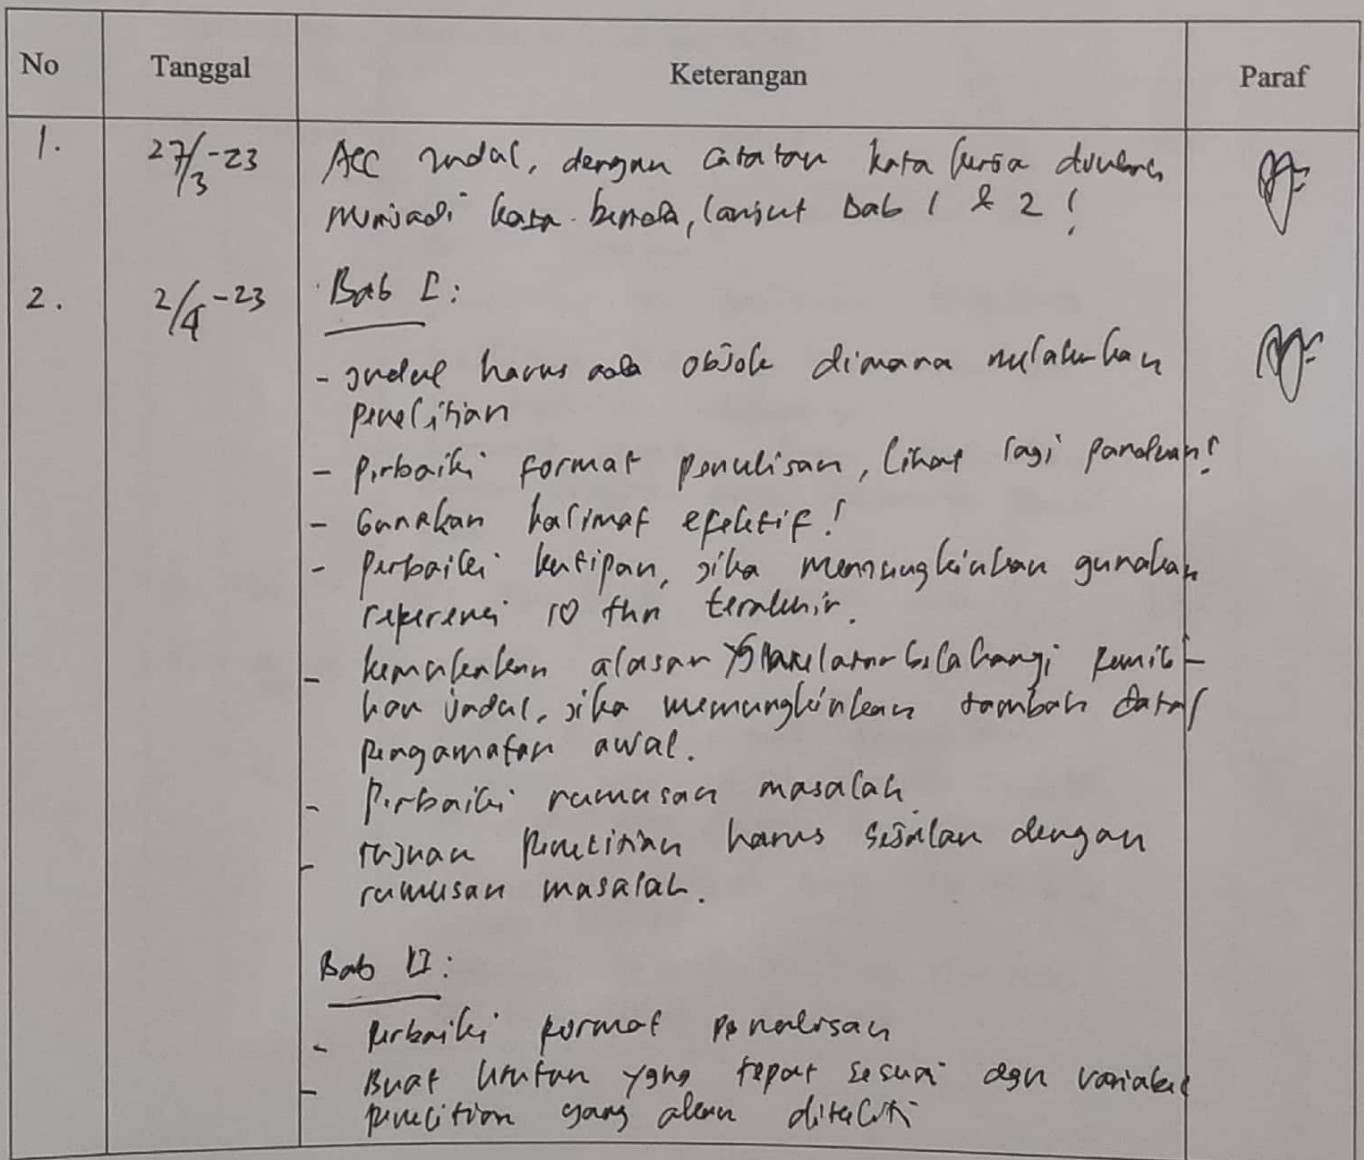 No Tanggal Keterangan Paraf
1. 27/3-23 Acc Judul, dengan catatan kata kerja dirubah
menjadi kata benda, lanjut Bab 1 & 2 !
2. 2/4-23 Bab I :
- Judul harus ada objek dimana melakukan
penelitian
- Perbaiki format penulisan, lihat lagi panduan!
- Gunakan kalimat efektif!
- Perbaiki kutipan, jika memungkinkan gunakan
referensi 10 thn terakhir.
- kemukakan alasan yg melatar belakangi pemili-
han judul, jika memungkinkan tambah data
pengamatan awal.
- Perbaiki rumusan masalah
- Tujuan penelitian harus sejalan dengan
rumusan masalah.
Bab II :
- Perbaiki format penulisan
- Buat urutan yang tepat sesuai dgn variabel
penelitian yang akan diteliti